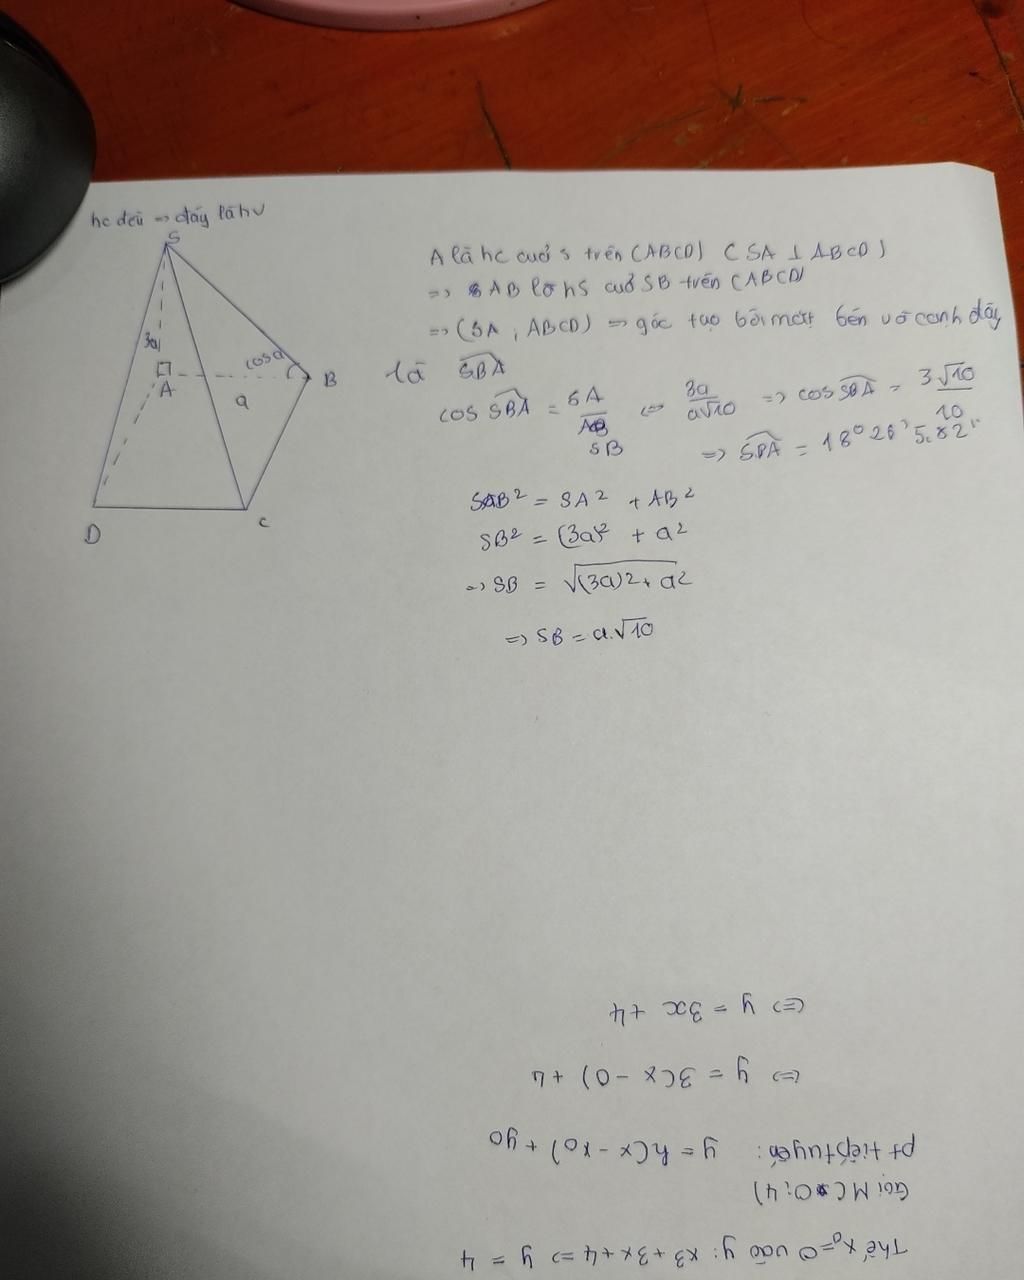 hc đều => đáy là hv
S
3a
A
cos α
B
a
D
C
A là hc cuả S trên (ABCD) ( SA ⊥ ABCD)
=> AB là hs cuả SB trên (ABCD)
=> (SA ; ABCD) => góc tạo bởi mặt bên và cạnh đáy
là SBA
cos SBA = SA / SB <=> 3a / a√10 => cos SBA = 3√10 / 10
=> SBA = 18° 26' 5.82"
SB² = SA² + AB²
SB² = (3a)² + a²
=> SB = √(3a)2 + a2
=> SB = a.√10
Thế x₀=0 vào y: x3 + 3x + 4 => y = 4
Gọi M( 0; 4)
pt tiếp tuyến: y = h(x - x0) + y0
<=> y = 3(x - 0) + 4
<=> y = 3x + 4